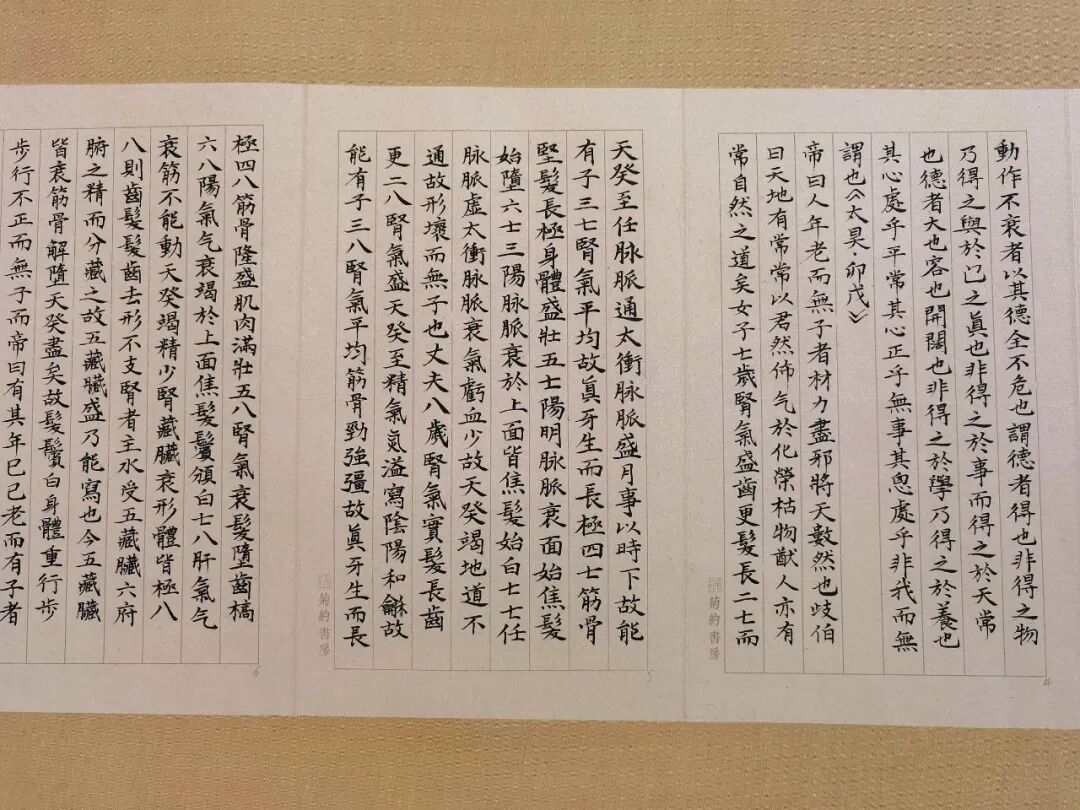 動作不衰者以其德全不危也謂德者得也非得之物
乃得之與於己之眞也非得之於事而得之於天常
也德者大也容也開闊也非得之於學乃得之於養也
其心處乎平常其心正乎無事其思處乎非我而無
謂也《太昊·卯戊》
帝曰人年老而無子者材力盡邪將天數然也歧伯
曰天地有常常以君然佈气於化榮枯物猷人亦有
常自然之道矣女子七歲腎氣盛齒更髮長二七而
菊約書房
4
天癸至任脉脈通太衝脉脈盛月事以時下故能
有子三七腎氣平均故眞牙生而長極四七筋骨
堅髮長極身體盛壯五七陽明脉脈衰面始焦髮
始墮六七三陽脉脈衰於上面皆焦髮始白七七任
脉脈虛太衝脉脈衰氣虧血少故天癸竭地道不
通故形壞而無子也丈夫八歲腎氣實髮長齒
更二八腎氣盛天癸至精氣氣溢寫陰陽和龢故
能有子三八腎氣平均筋骨勁強彊故眞牙生而長
菊約書房
5
極四八筋骨隆盛肌肉滿壯五八腎氣衰髮墮齒槁
六八陽氣气衰竭於上面焦髮鬢頒白七八肝氣气
衰筋不能動天癸竭精少腎藏臟衰形體皆極八
八則齒髮髮齒去形不支腎者主水受五藏臟六府
腑之精而分藏之故五藏臟盛乃能寫也今五藏臟
皆衰筋骨解墮天癸盡矣故髮鬢白身體重行步
步行不正而無子而帝曰有其年已已老而有子者
6